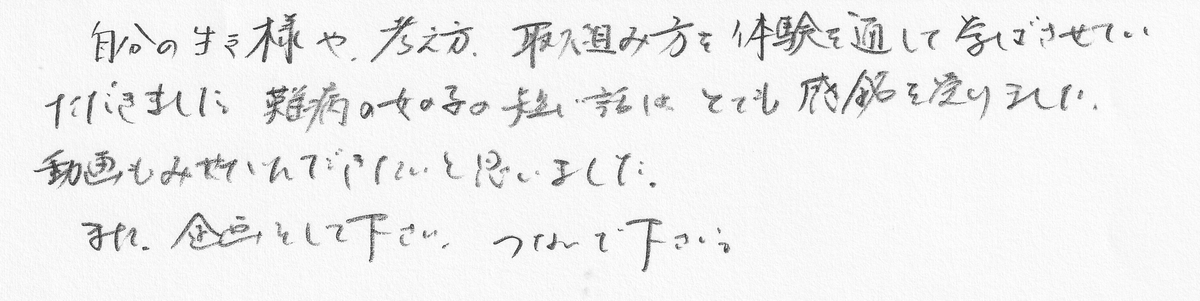 自分の生き様や、考え方、取り組み方を体験を通して学ばさせてい
ただきました。難病の女の子の短い話は、とても感銘を受けました。
動画もみせていただきたいと思いました。
また、企画をして下さい。つないで下さい。